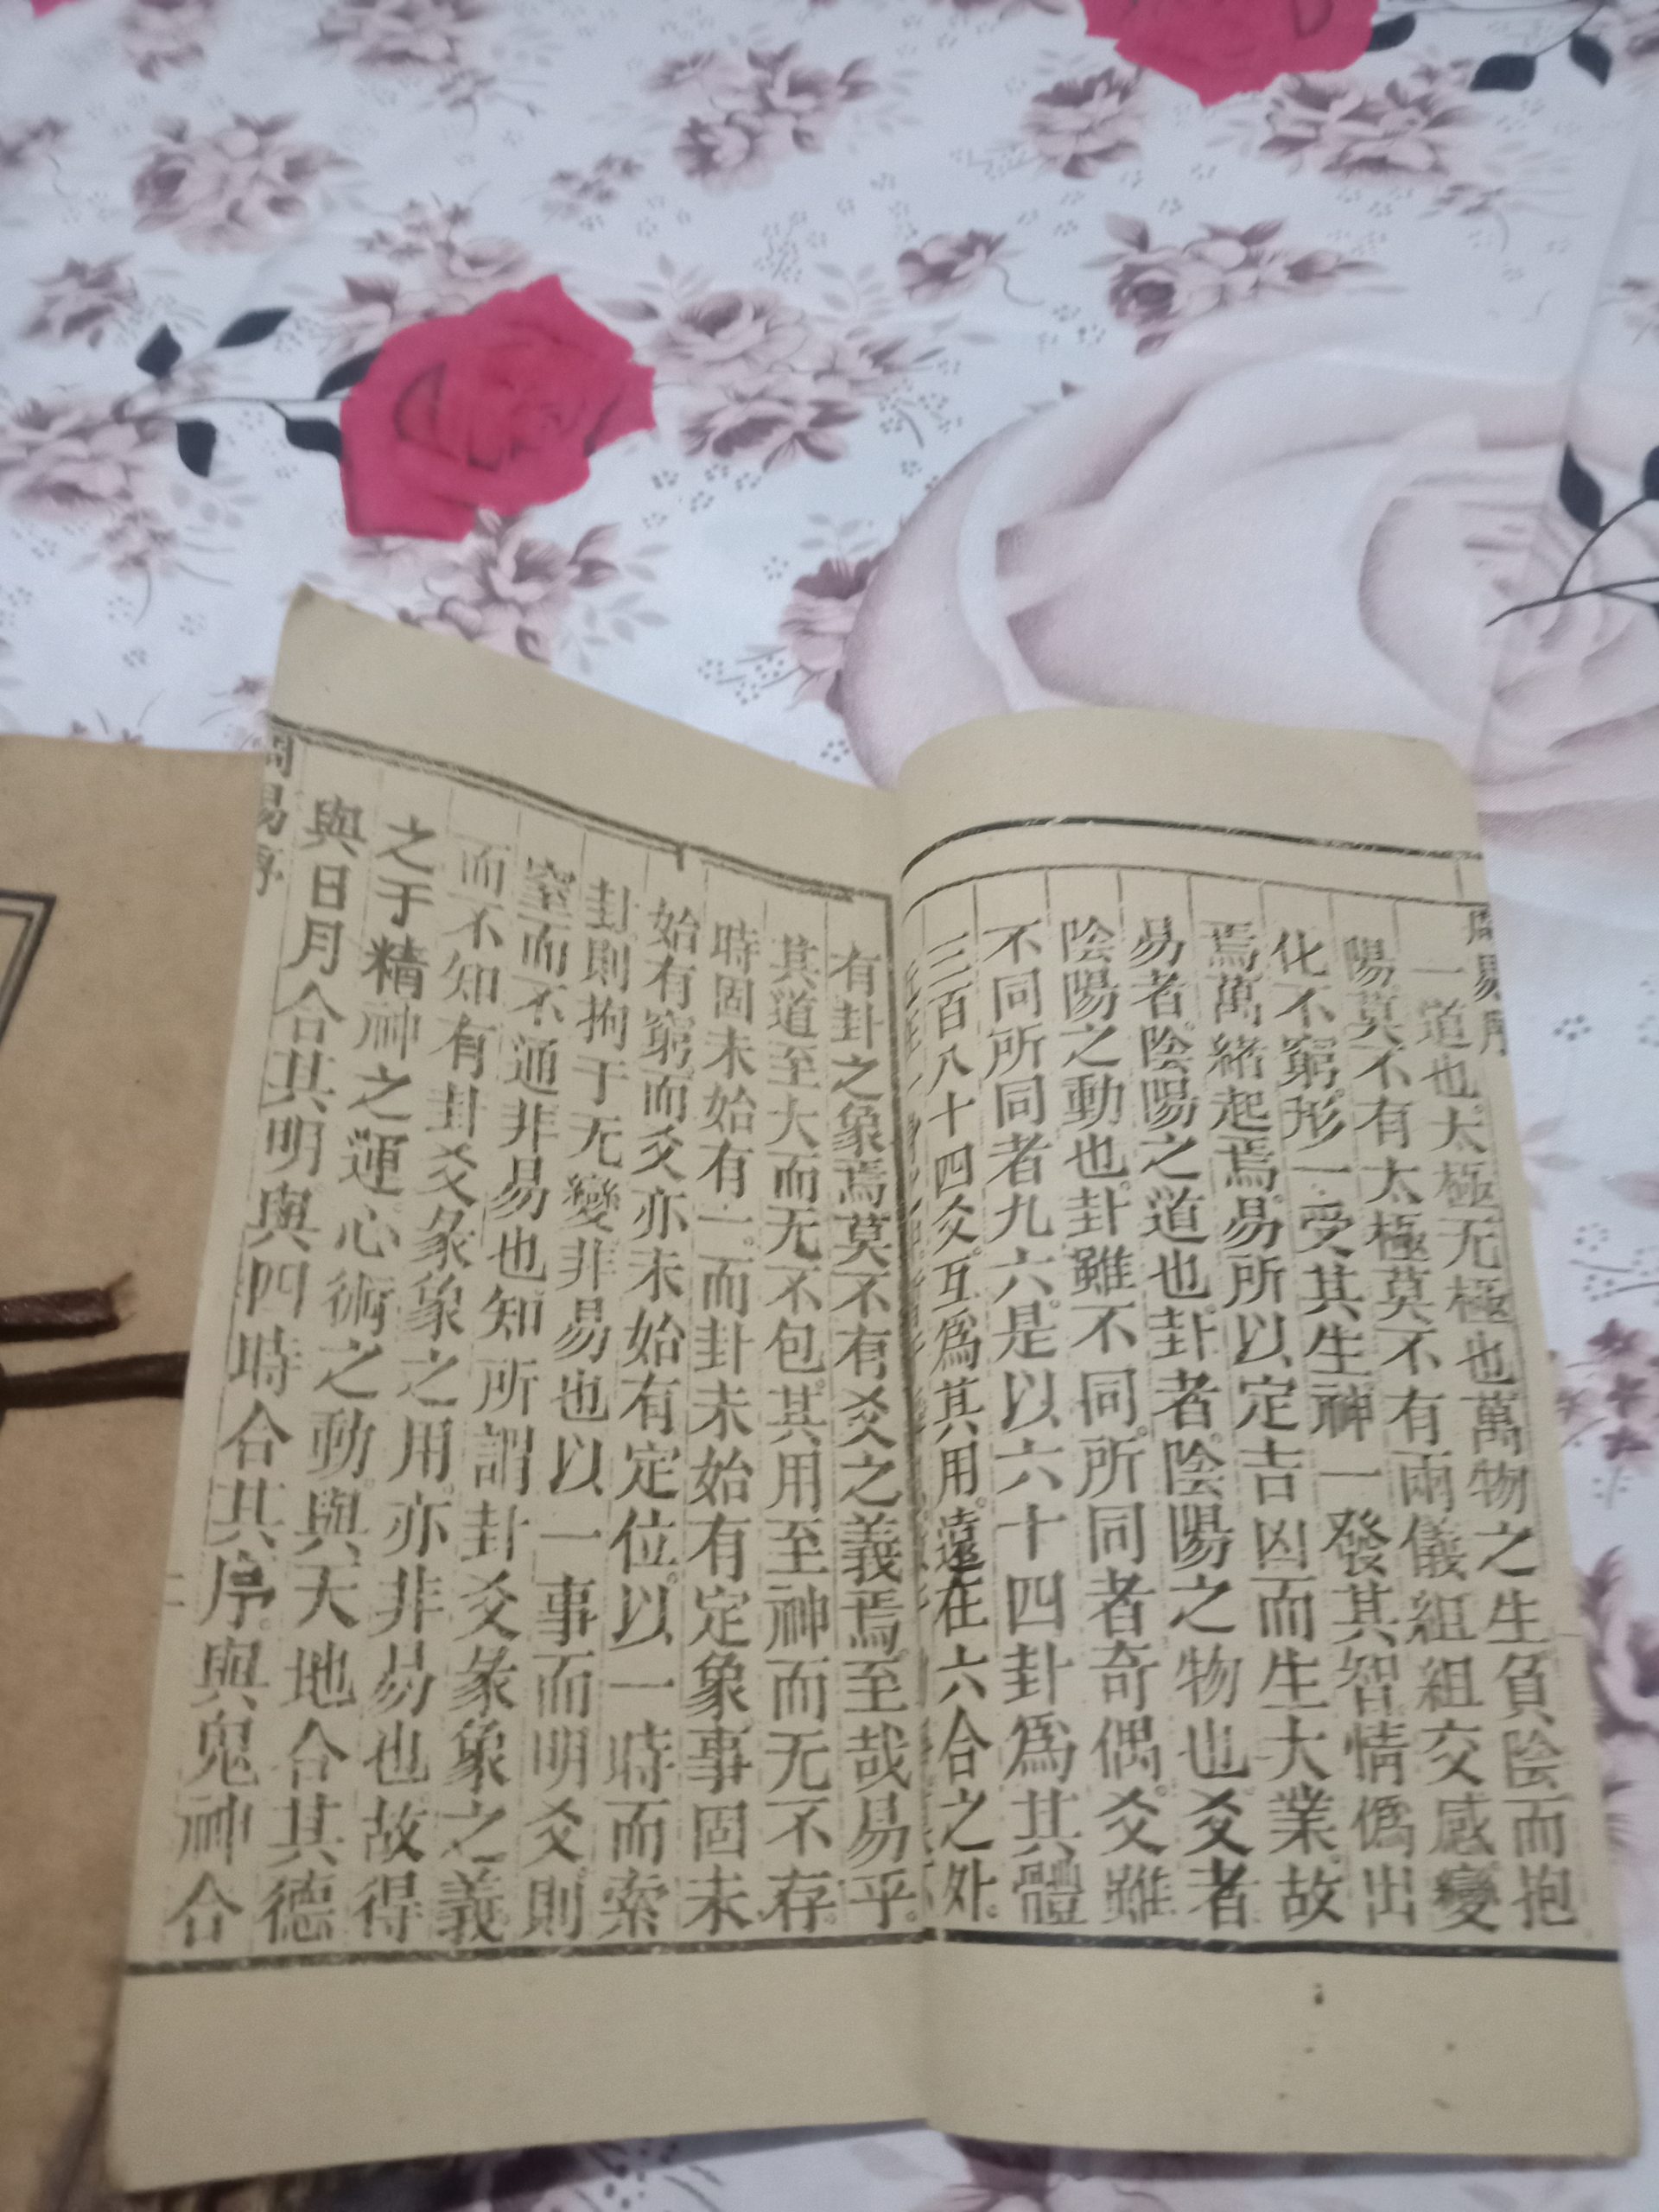 周易序
一道也太極无極也萬物之生負陰而抱
陽莫不有太極莫不有兩儀絪組交感變
化不窮形一受其生神一發其智情僞出
焉萬緒起焉易所以定吉凶而生大業故
易者陰陽之道也卦者陰陽之物也爻者
陰陽之動也卦雖不同所同者奇偶爻雖
不同所同者九六是以六十四卦爲其體
三百八十四爻互爲其用遠在六合之外
有卦之象焉莫不有爻之義焉至哉易乎
其道至大而无不包其用至神而无不存
時固未始有一而卦未始有定象事固未
始有窮而爻亦未始有定位以一時而索
卦則拘于无變非易也以一事而明爻則
窒而不通非易也知所謂卦爻彖象之義
而不知有卦爻彖象之用亦非易也故得
之于精神之運心術之動與天地合其德
與日月合其明與四時合其序與鬼神合
周易序
二